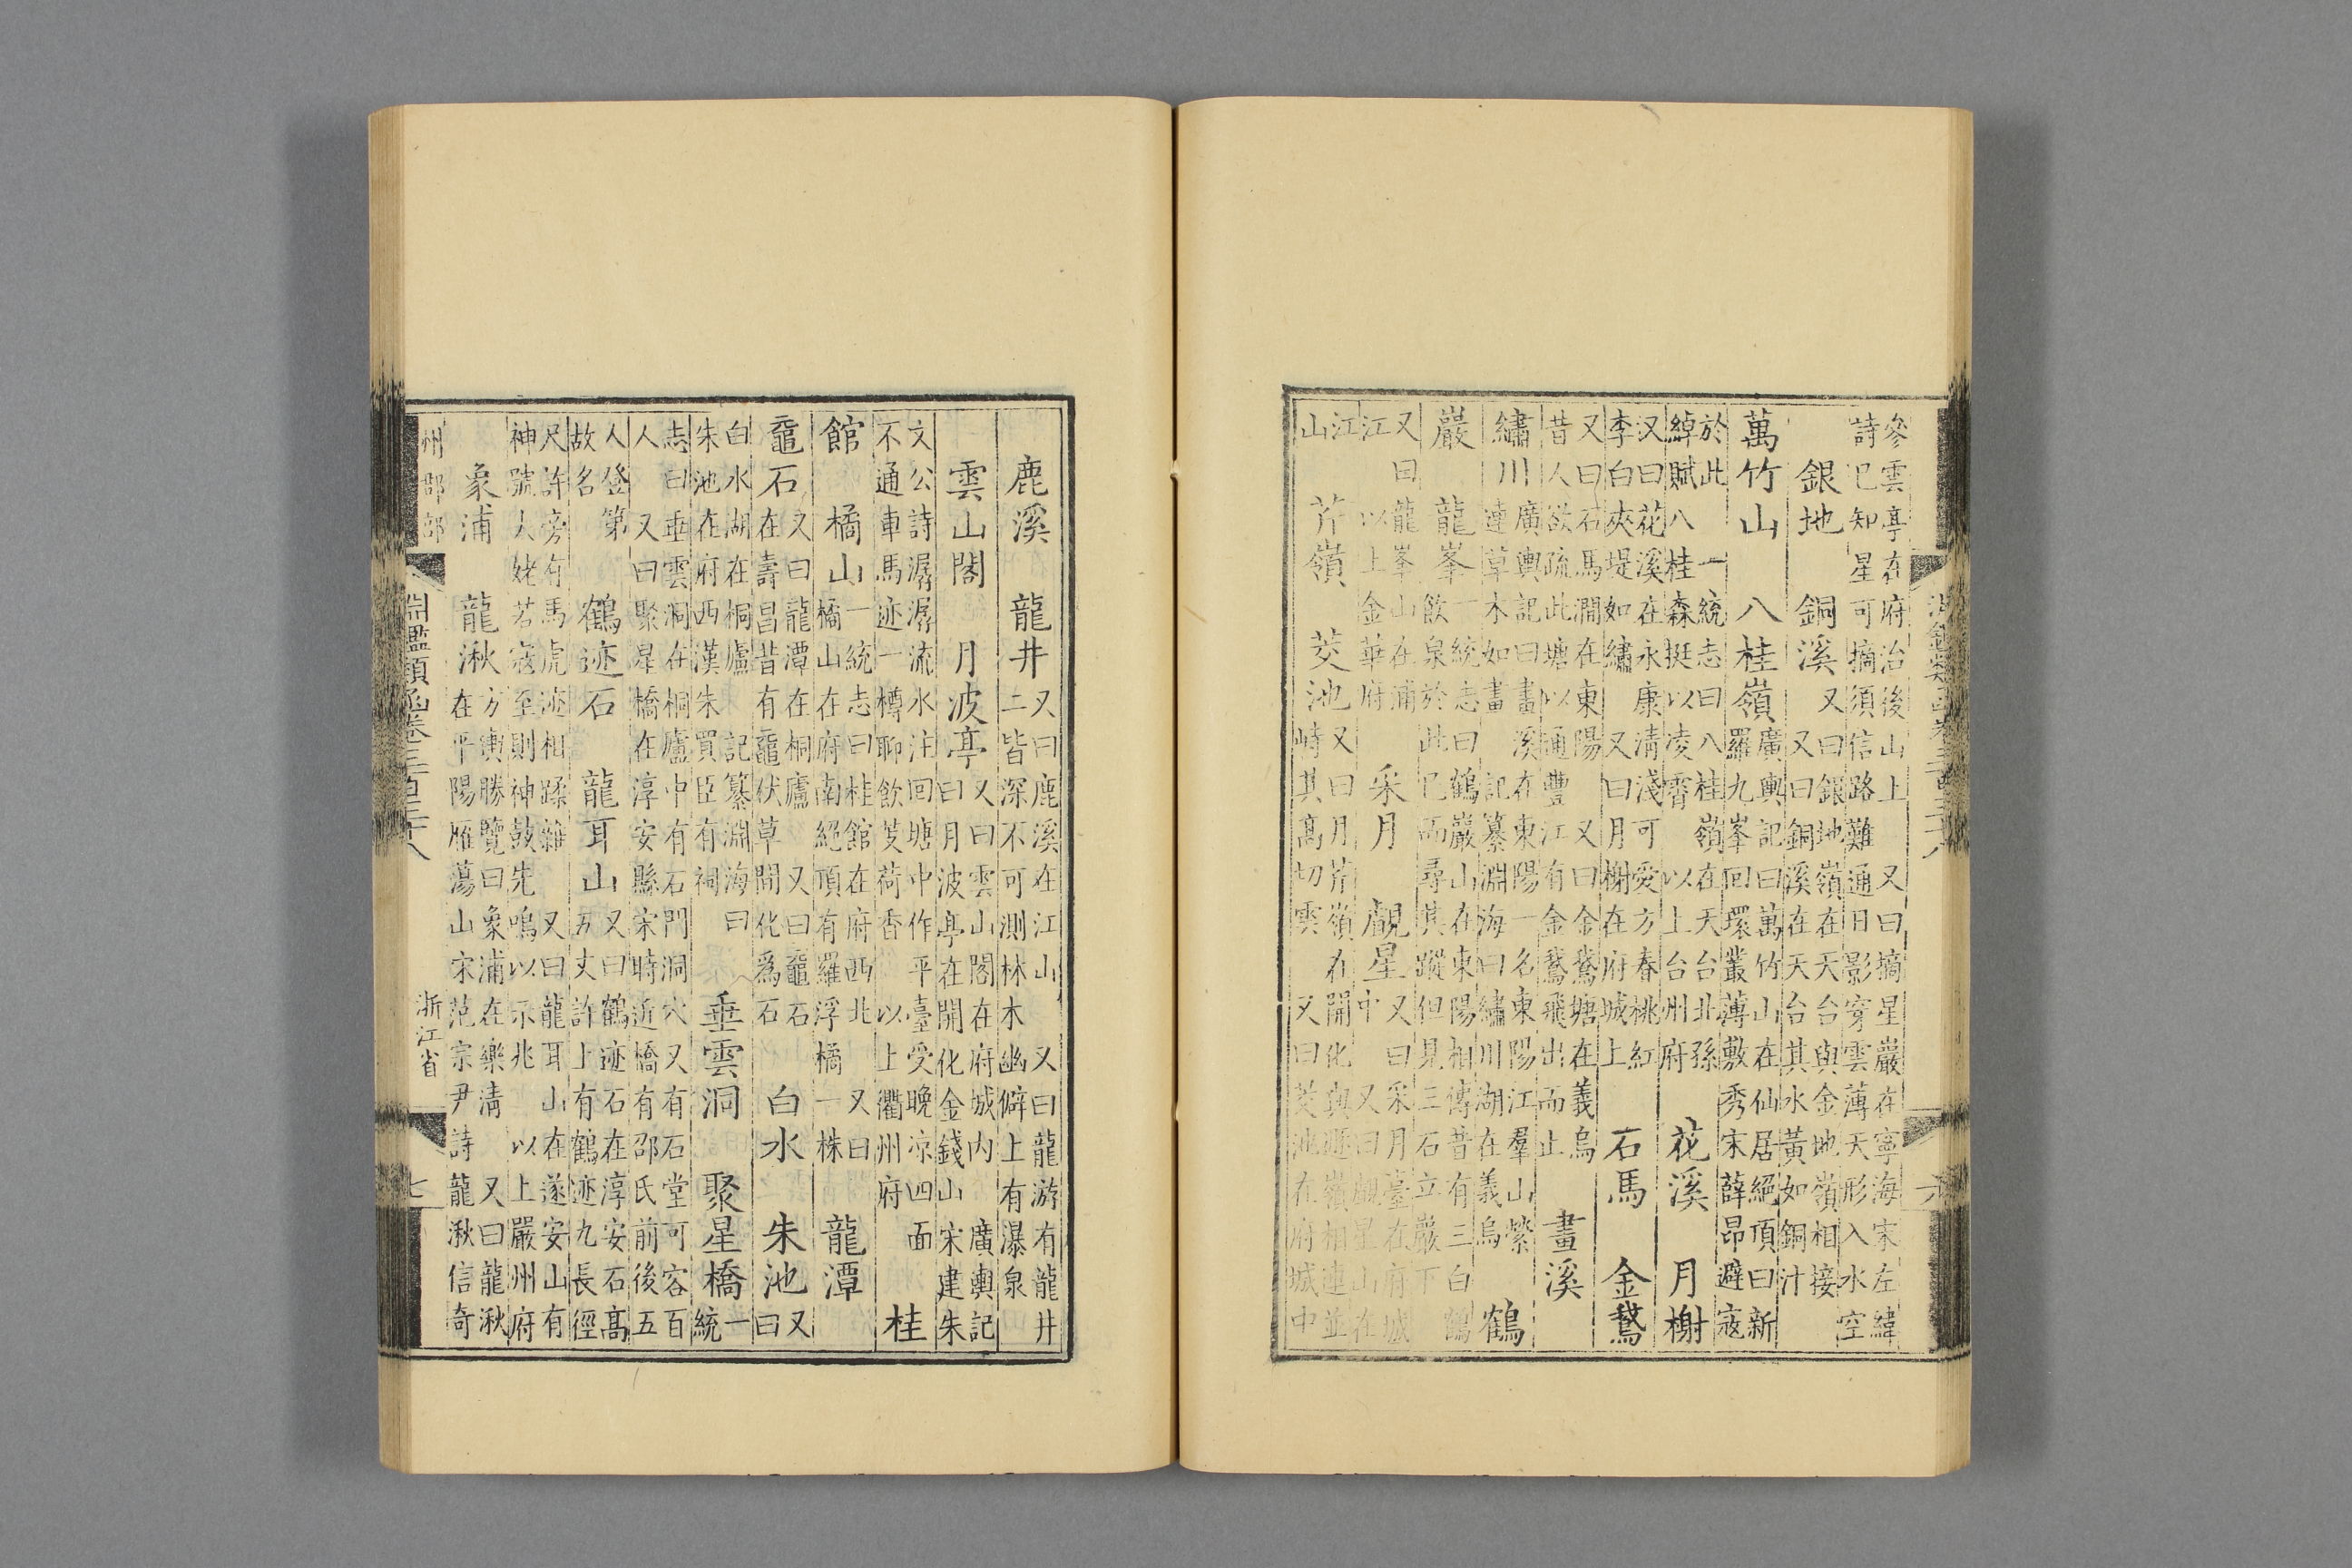 參雲亭在府治後山上 又曰摘星巖在寧海宋左緯
詩已知星可摘須信路難通日影穿雲薄天形入水空
銀地 銅溪
又曰銀地嶺在天台與金地嶺相接
又曰銅溪在天台其水黃如銅汁
萬竹山 八桂嶺
廣輿記曰萬竹山在仙居絕頂曰新
羅九峯回環叢薄敷秀宋薛昂避寇
於此 一統志曰八桂嶺在天台北孫
綽賦八桂森挺以凌霄 以上台州府
花溪 月榭
又曰花溪在永康清淺可愛方春桃紅
李白夾堤如繡 又曰月榭在府城上
石馬 金鵞
又曰石馬澗在東陽 又曰金鵞塘在義烏
昔人欲疏此塘以通豐江有金鵞飛出而止
畫溪
繡川
廣輿記曰畫溪在東陽一名東陽江羣山縈
連草木如畫 記纂淵海曰繡川湖在義烏
鶴
巖 龍峯
一統志曰鶴巖山在東陽相傳昔有三白鶴
飲泉於此已而尋其蹤但見三石立巖下
又曰龍峯山在浦
江 以上金華府
采月 覷星
又曰采月臺在府城
中 又曰覷星山在
江
山
芹嶺 茭池
又曰月芹嶺在開化與遊嶺相連並
峙其高切雲 又曰茭池在府城中
鹿溪 龍井
又曰鹿溪在江山 又曰龍游有龍井
二皆深不可測林木幽僻上有瀑泉
雲山閣 月波亭
又曰雲山閣在府城內 廣輿記
曰月波亭在開化金錢山宋建朱
文公詩潺潺流水注回塘中作平臺受晚凉四面
不通車馬迹一樽聊飲芰荷香 以上衢州府
桂
館 橘山
一統志曰桂館在府西北 又曰
橘山在府南絕頂有羅浮橘一株
龍潭
黿石
又曰龍潭在桐廬 又曰黿石
在壽昌昔有黿伏草間化爲石
白水 朱池
又
曰
白水湖在桐廬 記纂淵海曰
朱池在府西漢朱買臣有祠
垂雲洞 聚星橋
一
統
志曰垂雲洞在桐廬中有石門洞穴又有石堂可容百
人 又曰聚星橋在淳安縣宋時近橋有邵氏前後五
人登第
故名
鶴迹石 龍耳山
又曰鶴迹石在淳安石高
五丈許上有鶴迹九長徑
尺許旁有馬虎迹相蹂雜 又曰龍耳山在遂安山有
神號人姥若寇至則神鼓先鳴以示兆 以上嚴州府
象浦 龍湫
方輿勝覽曰象浦在樂清 又曰龍湫
在平陽雁蕩山宋范宗尹詩龍湫信奇
州郡部
淵鑑類函卷三百三十八
浙江省
七